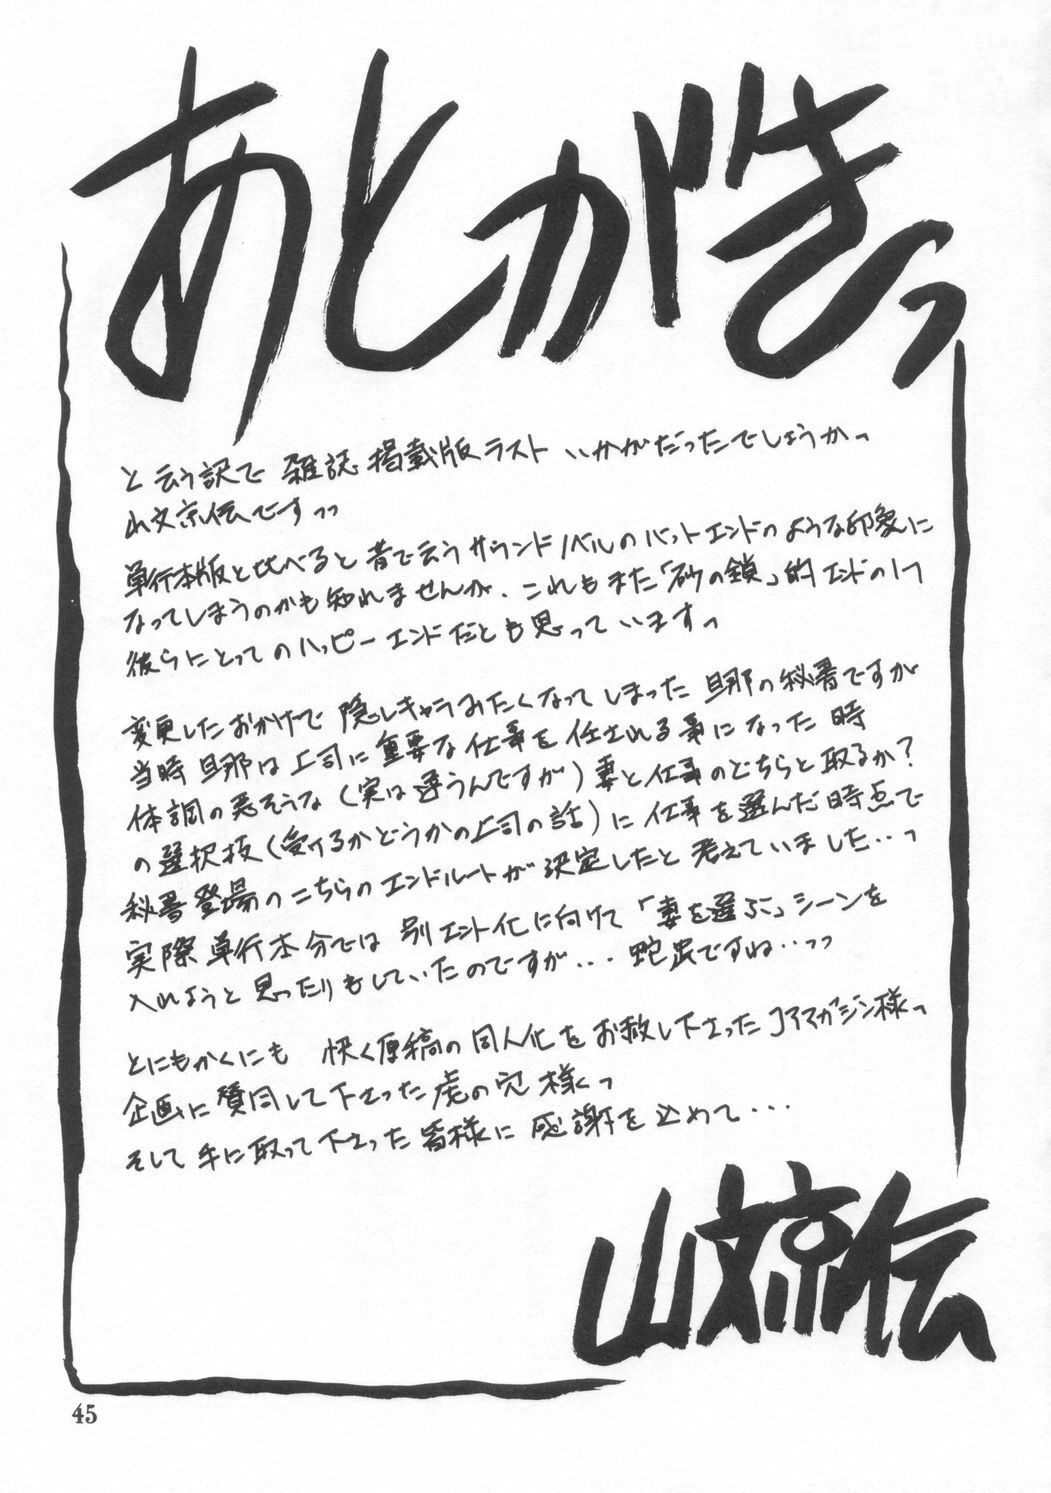 あとがきっ
と云う訳で 雑誌掲載版ラスト いかがだったでしょうかっ
山文京伝ですっっ
単行本版と比べると昔で云うサウンドノベルのバットエンドのような印象に
なってしまうのかも知れませんが、これもまた「砂の鎖」的エンドの1つ
彼らにとってのハッピーエンドだとも思っていますっ
変更したおかげで 隠しキャラみたくなってしまった 旦那の秘書ですが
当時旦那は上司に重要な仕事を任される事になった時
体調の悪そうな(実は違うんですが)妻と仕事のどちらと取るか?
の選択枝(受けるかどうかの上司の話)に仕事を選んだ時点で
秘書登場のこちらのエンドルートが決定したと考えていました‥っ
実際単行本分では 別エント化に向けて「妻を選ぶ」シーンを
入れようと思ったりもしていたのですが・・・蛇足ですね‥っっ
とにもかくにも 快く原稿の同人化をお赦し下さったコアマガジン様っ
企画に賛同して下さった虎の穴様っ
そして手に取って下さった皆様に 感謝を込めて・・・
山文京伝
45